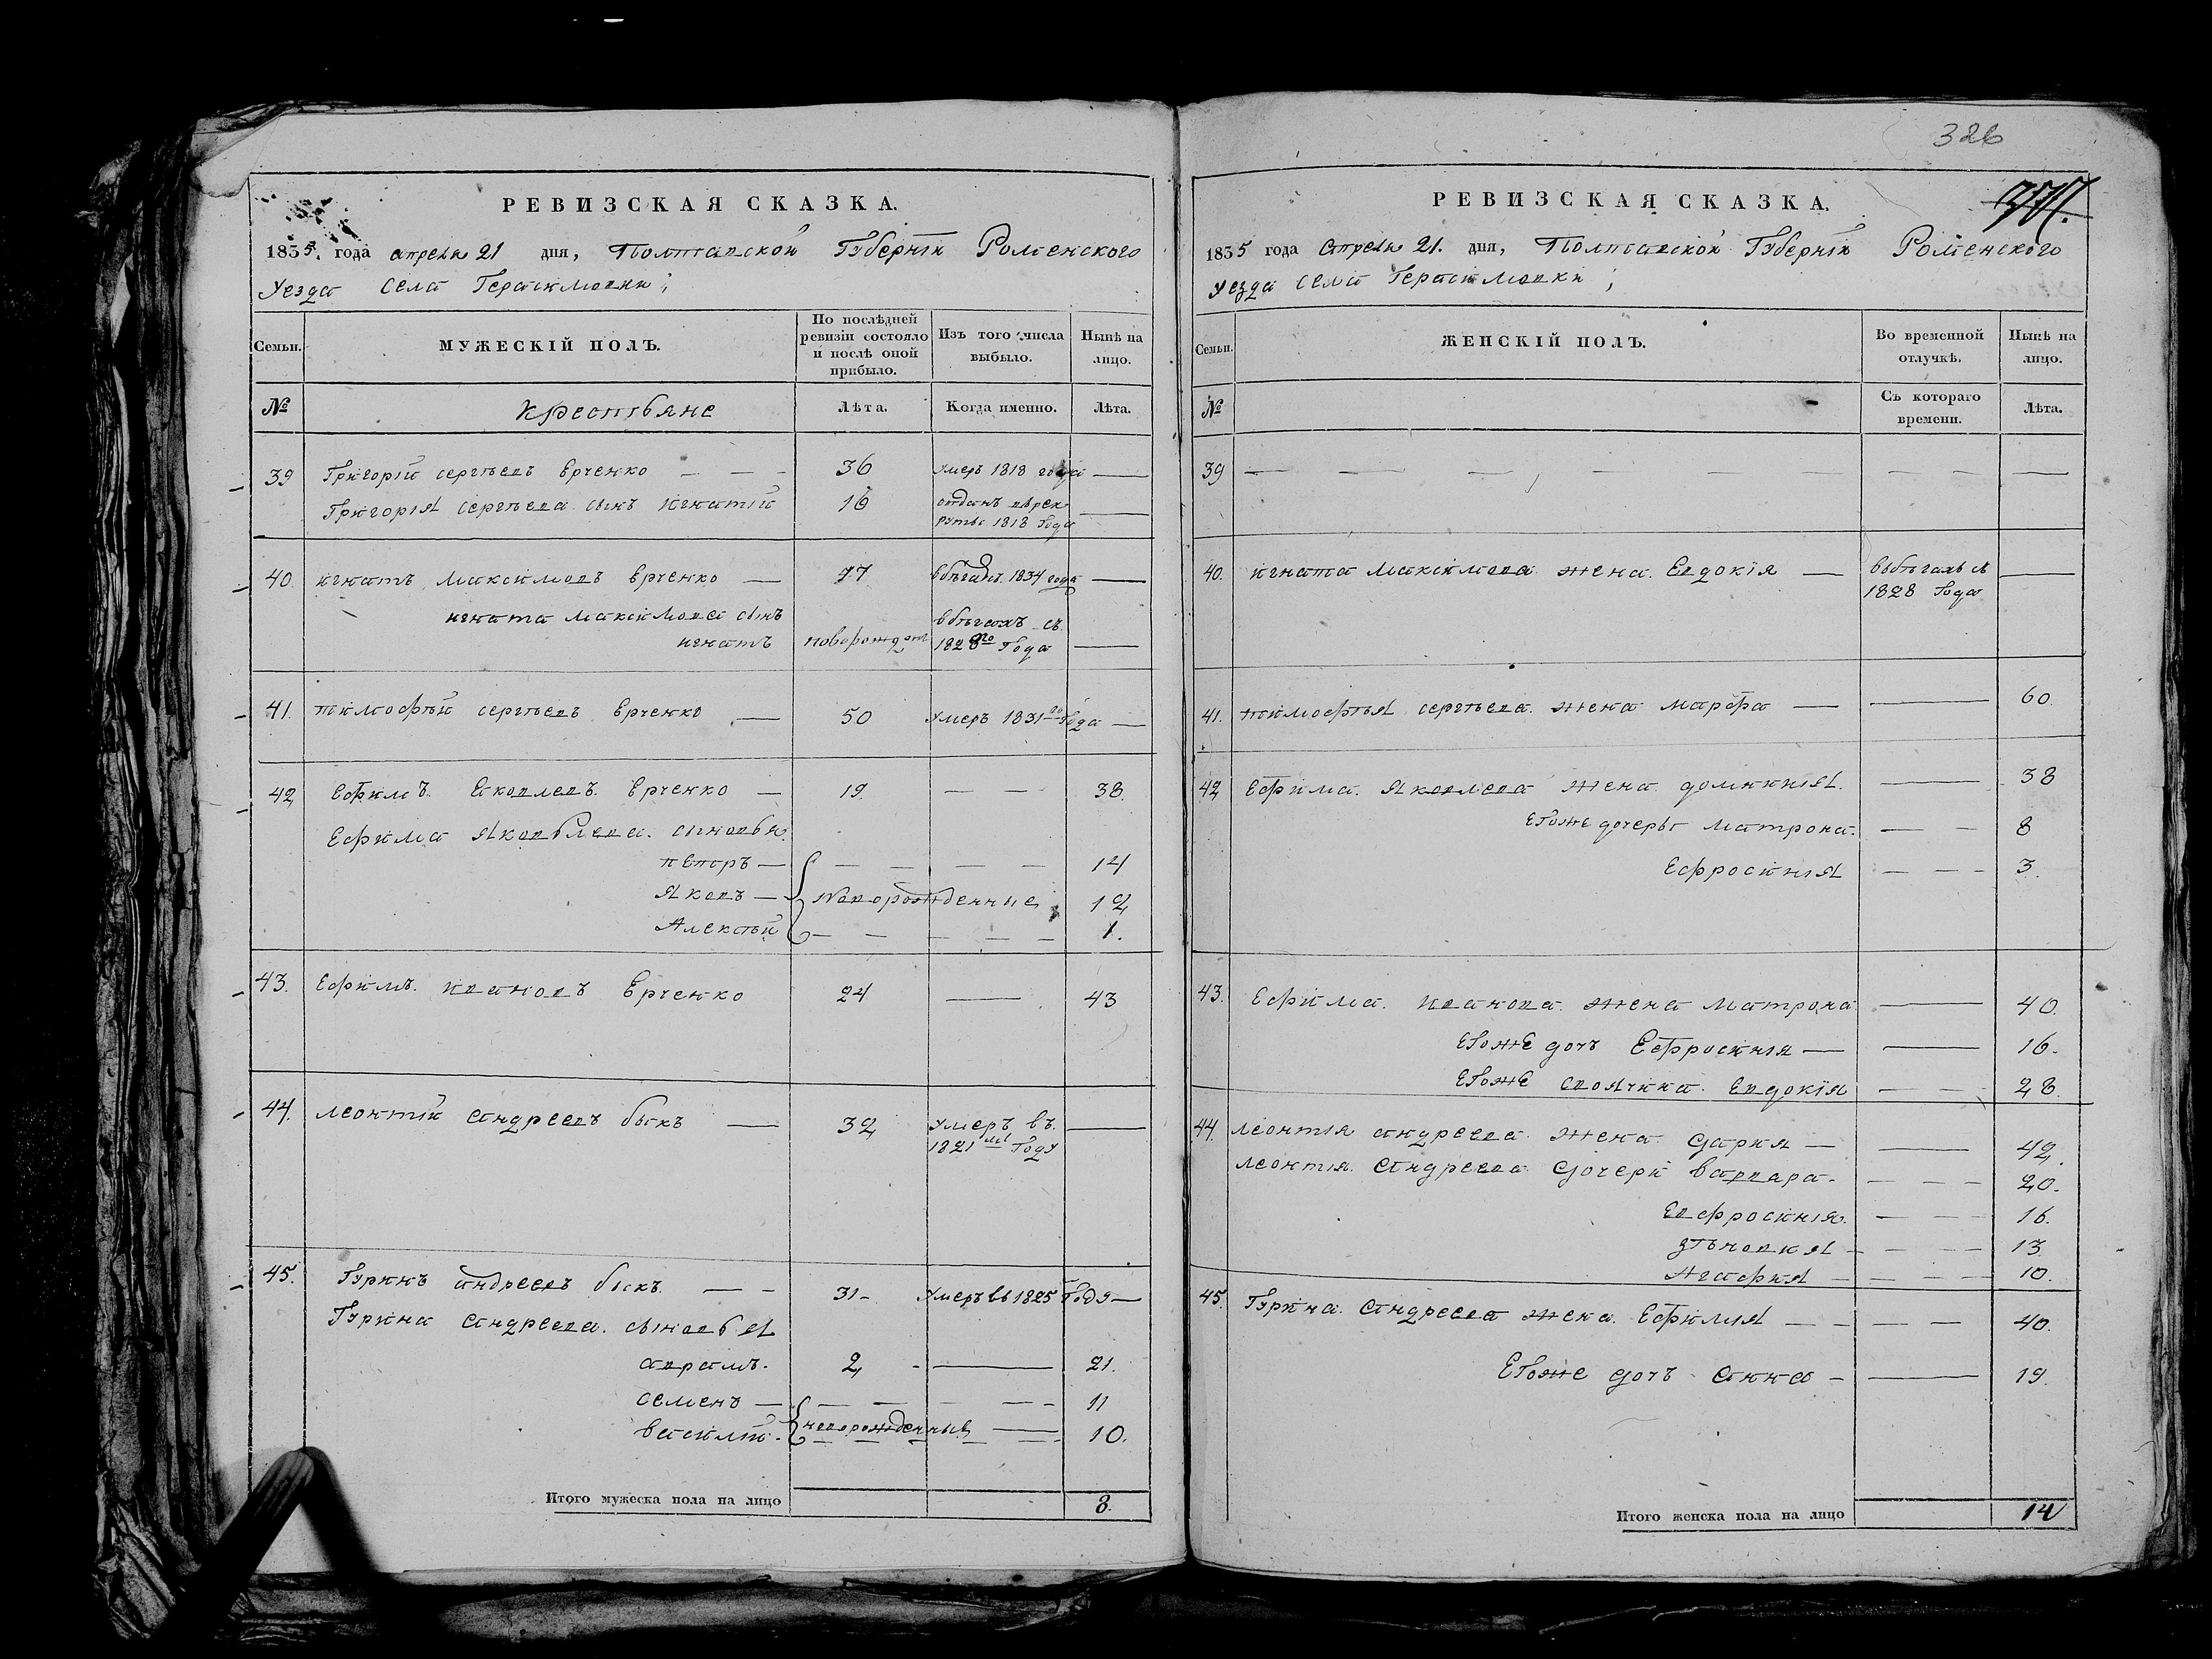 РЕВИЗСКАЯ СКАЗКА.
1835. года апреля 21 дня, Полтавской Губернiи Роменского
Уезда Села Герасимовки;
Семьи.
МУЖЕСКIЙ ПОЛЪ.
По послѣдней ревизiи состояло и послѣ оной прибыло.
Изъ того числа выбыло.
Нынѣ на лицо.
№ Крестьяне Лѣта. Когда именно. Лѣта.
39 Григорiй сергѣевъ Ерченко — — - 36 умеръ 1818 года —
Григорiя сергѣева сынъ игнатiй 16 отданъ въ рек
руты 1818 года —
40 игнатъ Максимовъ Ерченко — 77 вбѣгахъ 1834 года —
игната максимова сынъ вбѣгахъ съ
игнатъ новорожден 1828го Года —
41. тимофѣй сергѣевъ Ерченко — 50 умеръ 1831го Года —
42 Ефимъ Яковлевъ Ерченко — 19. — — 38.
Ефима Яковлева. сыновья
петръ — — — — — 14
Яковъ — Новорожденные 12
Алексѣй — — — — — 1.
43. Ефимъ. ивановъ Ерченко 24 — 43
44. леонтiй андреевъ быкъ — 32 умеръ въ. —
1821мъ Году
45. Гуринъ андреевъ быкъ. — - 31- умеръ въ 1825 Году —
Гурина андреева. сыновья
аврамъ. 2 - — 21.
семенъ — — — — — - 11
василiй. новорожденныя — 10.
Итого мужеска пола на лицо 8.
326
РЕВИЗСКАЯ СКАЗКА.
1835 года апреля 21. дня, Полтавской Губернiи Роменского
уезда села Герасимовки;
Семьи.
ЖЕНСКIЙ ПОЛЪ.
Во временной отлучкѣ.
Нынѣ на лицо.
№ Съ котораго времени. Лѣта.
39 — — — — — — — —
40. игната Максимова жена. Евдокiя — вбѣгахъ съ —
1828 Года
41. тимофѣя сергѣева. жена марфа — — 60.
42 Ефима. Яковлева жена домникiя. — 38
Егоже дочеры матрона. — — 8
Ефросинiя — — - 3.
43. Ефима. иванова. жена матрона — 40.
Егоже дочъ Ефросинiя — — 16.
Егоже своячина. Евдокiя — — 28.
44. леонтiя андреева жена дария — — 42.
леонтiя. андреева дочери варвара. — — — 20.
Евфросинiя. — — — 16.
зѣновия — — — 13
Агафия — — — — 10.
45. Гурина. андреева жена. Ефимия — - — — 40.
Егоже дочъ анна - — 19.
Итого женска пола на лицо 14